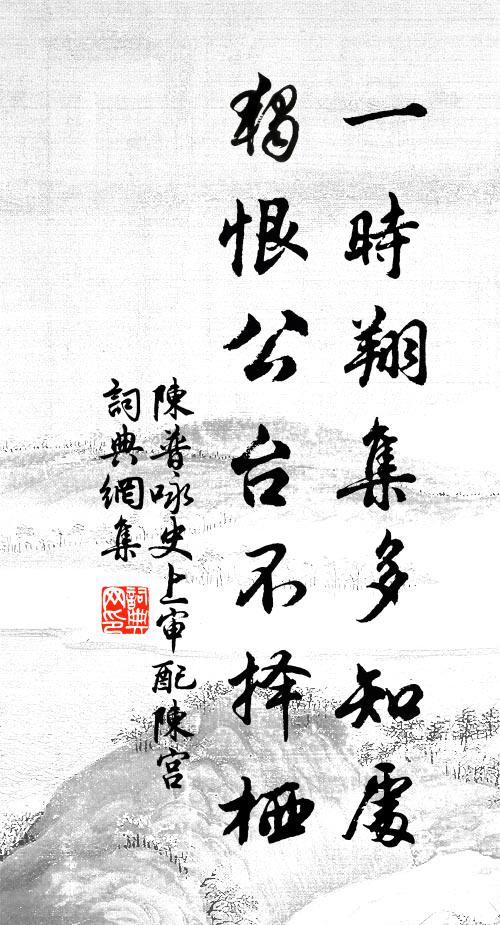 一時翔集多知處
獨恨公台不择栖
陳普咏史上审配陳宫
詞典網集
詞典网印